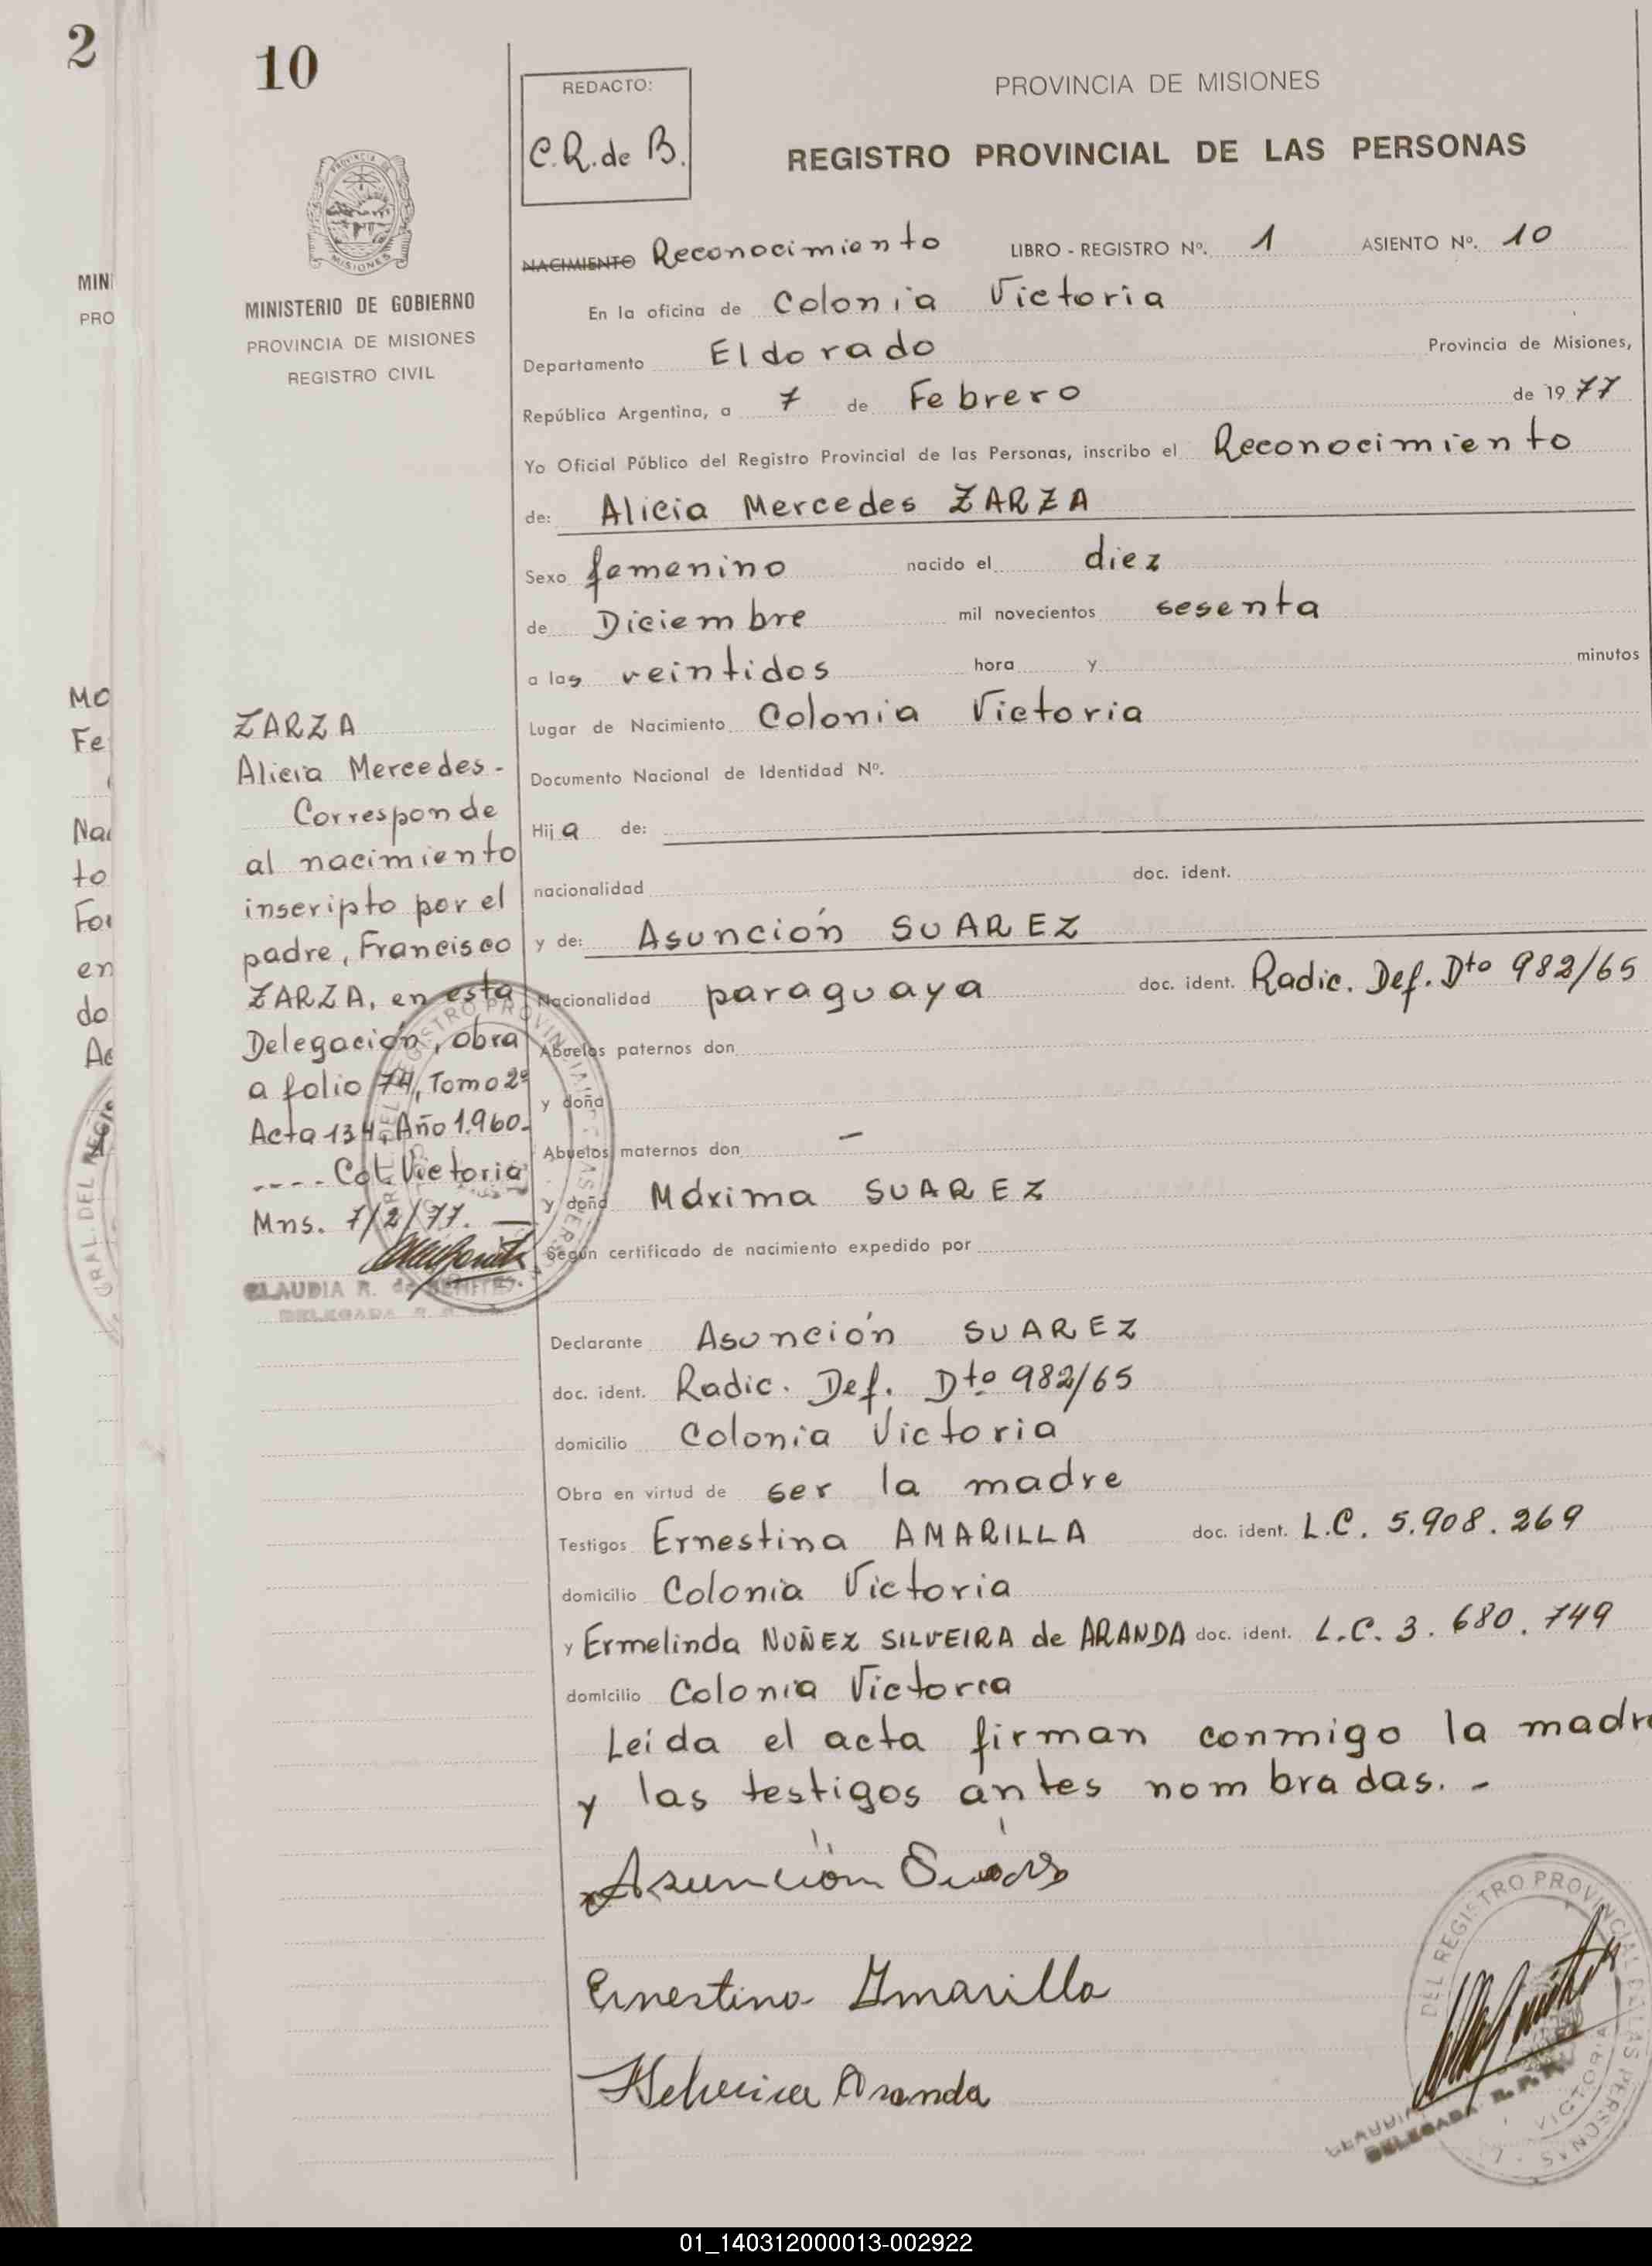 2
10
REDACTO:
C.R. de B.
PROVINCIA DE MISIONES
REGISTRO PROVINCIAL DE LAS PERSONAS
PROVINCIA DE
MISIONES
MINISTERIO DE GOBIERNO
PROVINCIA DE MISIONES
REGISTRO CIVIL
NACIMIENTO Reconocimiento LIBRO - REGISTRO Nº. 1 ASIENTO Nº. 10
En la oficina de Colonia Victoria
Departamento Eldorado Provincia de Misiones,
República Argentina, a 7 de Febrero de 1977
Yo Oficial Público del Registro Provincial de las Personas, inscribo el Reconocimiento
de: Alicia Mercedes ZARZA
Sexo femenino nacido el diez
de Diciembre mil novecientos sesenta
a las veintidos hora y minutos
Lugar de Nacimiento Colonia Victoria
Documento Nacional de Identidad Nº.
Hija de:
nacionalidad doc. ident.
y de: Asunción SUAREZ
Nacionalidad paraguaya doc. ident. Radic. Def. Dto 982/65
Abuelos paternos don
y doña
Abuelos maternos don –
y doña Máxima SUAREZ
Según certificado de nacimiento expedido por
Declarante Asunción SUAREZ
doc. ident. Radic. Def. Dto 982/65
domicilio Colonia Victoria
Obra en virtud de ser la madre
Testigos Ernestina AMARILLA doc. ident. L.C. 5.908.269
domicilio Colonia Victoria
y Ermelinda NUÑEZ SILVEIRA de ARANDA doc. ident. L.C. 3.680.749
domicilio Colonia Victoria
Leída el acta firman conmigo la madre
y las testigos antes nombradas. -
Asunción Suárez
Ernestina Amarilla
Aranda
ZARZA
Alicia Mercedes -
Corresponde
al nacimiento
inscripto por el
padre, Francisco
ZARZA, en esta
Delegación, obra
a folio 74, Tomo 2º
Acta 134, Año 1.960-
---- Col. Victoria
Mns. 7/2/77. —
CLAUDIA R. de BENITEZ
DELEGADA
MINI
PRO
Mo
Fe
Na
to
Fo
en
do
Ac
GRAL. DEL REGIS
DEL REGISTRO PROVINCIAL DE LAS PERSONAS
VICTORIA
CLAUDIA
DELEGADA R. P. P.
01_140312000013-002922